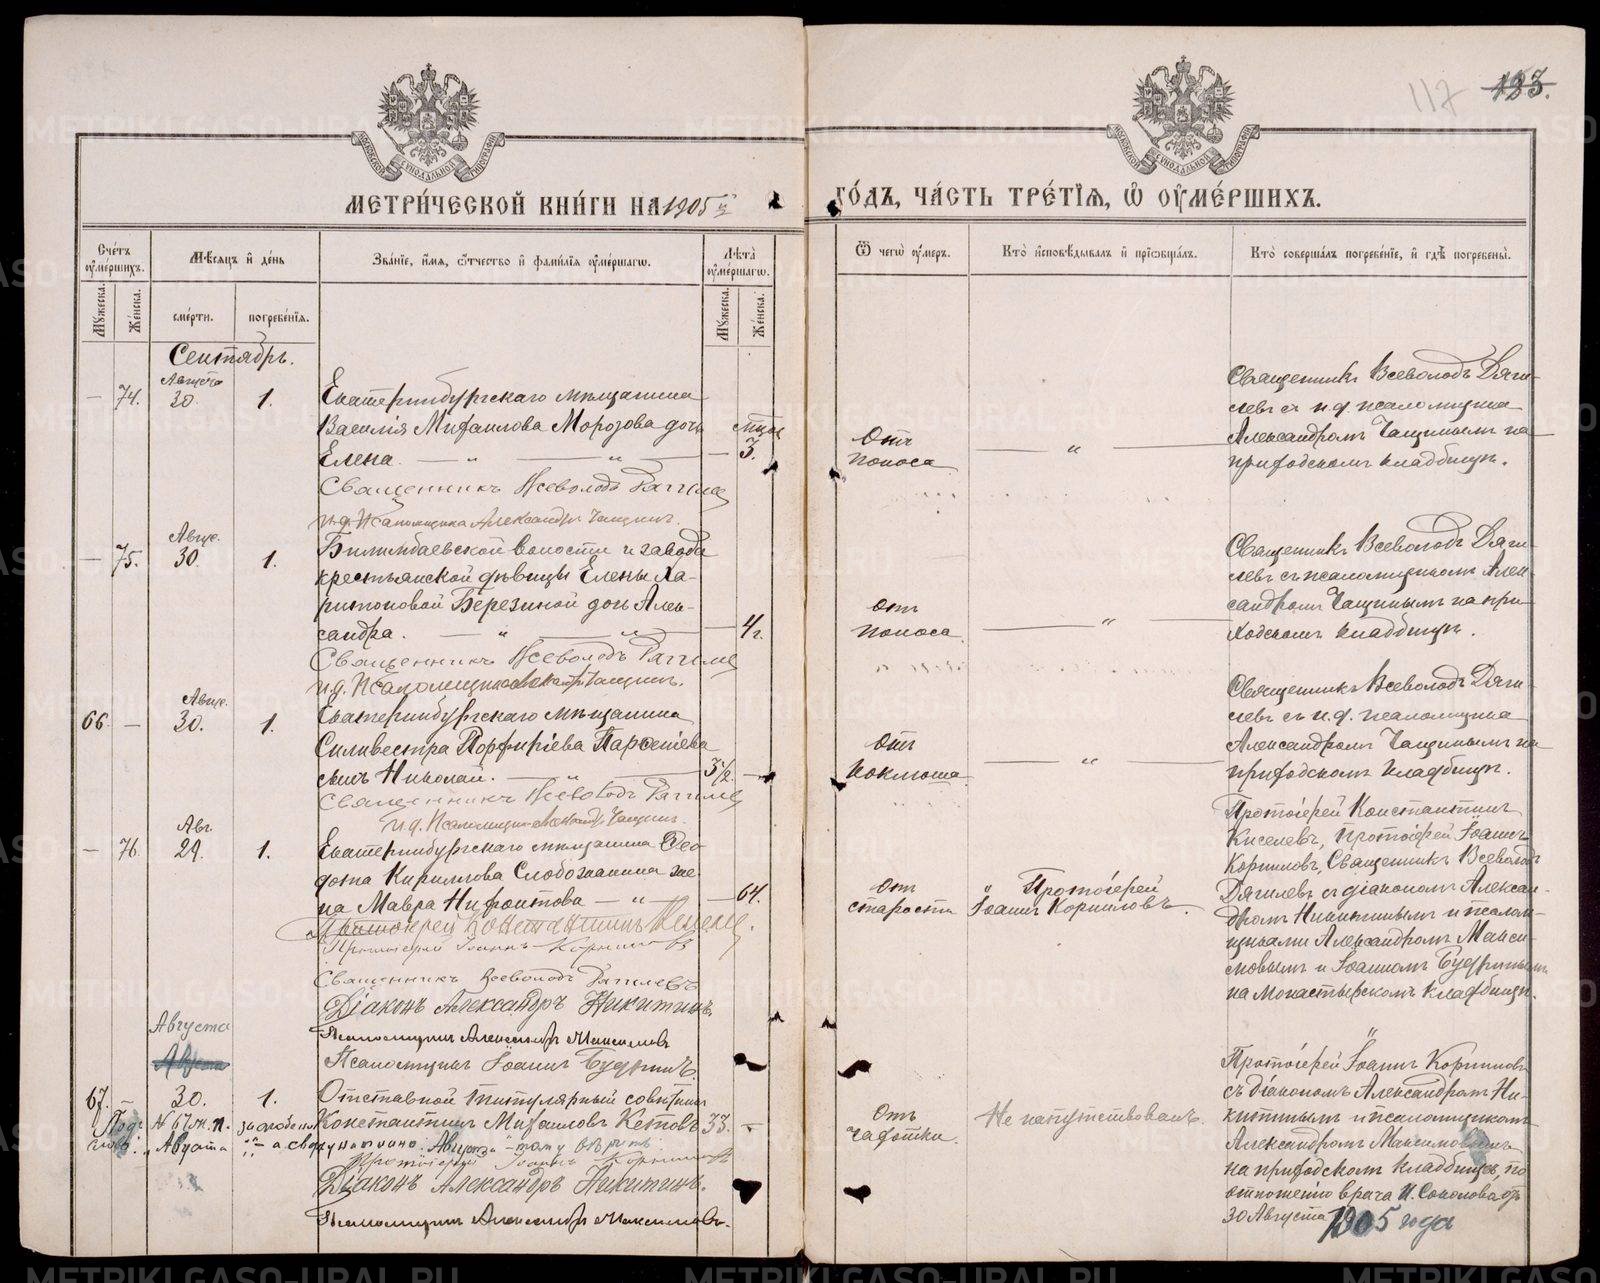 117 123.
МЕТРИ́ЧЕСКОЙ КНИ́ГИ НА 1905й
ГО́ДЪ, ЧА́СТЬ ТРЕ́ТІѦ, Ѿ ОУМЕ́РШИХЪ.
Сче́тъ оуме́ршихъ.
Мѣ́сѧцъ и҆ де́нь
Зва́нїе, и҆́мѧ, ѻ҆́тчество и҆ фами́лїѧ оуме́ршагѡ.
Лѣ́та оуме́ршагѡ.
Ѿ чегѡ̀ оу҆́меръ.
Кто̀ и҆сповѣ́дывалъ и҆ прїѡбща́лъ.
Кто̀ соверша́лъ погребе́нїе, и҆ гдѣ̀ погребены̀.
Мꙋ́жеска.
Же́нска.
сме́рти.
погребе́нїѧ.
Мꙋ́жеска.
Же́нска.
Сентябрь.
— 74. Августа 30. 1.
Екатеринбургскаго мѣщанина
Василія Михаилова Морозова дочь
Елена. — „ — „ — — 3.
Священникъ Всеволодъ Дягилев
и.д. Псаломщика Александръ Чащинъ.
Отъ
поноса
— „ —
Священникъ Всеволодъ Дяги-
левъ съ и.д. псаломщика
Александромъ Чащинымъ на
приходскомъ кладбищѣ.
— 75. Авгус. 30. 1.
Билимбаевской волости и завода
крестьянской дѣвицы Елены Ха-
ритоновой Березиной дочь Алек-
сандра. — „ — „ — — 4 г.
Священникъ Всеволодъ Дягилев
и.д. Псаломщика Чащинъ.
Отъ
поноса.
— „ —
Священникъ Всеволодъ Дяги-
левъ съ псаломщикомъ Алек-
сандромъ Чащинымъ на при-
ходскомъ кладбищѣ.
66. — Авгус. 30. 1.
Екатеринбургскаго мѣщанина
Сильвестра Порфиріева
сынъ Николай. — „ — 3½. —
Священникъ Всеволодъ Дягилев
и.д. Псаломщика Александръ Чащинъ.
Отъ
коклюша
— „ —
Священникъ Всеволодъ Дяги-
левъ съ и.д. псаломщика
Александромъ Чащинымъ на
приходскомъ кладбищѣ.
— 76. Авг. 29. 1.
Екатеринбургскаго мѣщанина Ѳео-
дота Кириллова Слобожанина же-
на Мавра Нифонтова — „ — — 64.
Протоіерей Константинъ
Протоіерей Іоаннъ Корниловъ
Священникъ Всеволодъ Дягилевъ
Діаконъ Александръ Никитинъ.
Псаломщикъ Александръ Максимовъ
Псаломщикъ Іоаннъ
Отъ
старости
„ Протоіерей
Іоаннъ Корниловъ.
Протоіерей Константинъ
Киселевъ, Протоіерей Іоаннъ
Корниловъ, Священникъ Всеволодъ
Дягилевъ съ діакономъ Алексан-
дромъ Никитинымъ и псалом-
щиками Александромъ Макси-
мовымъ и Іоанномъ
на Монастырскомъ кладбищѣ.
Августа
67. — 30. 1.
Отставной титулярный совѣтникъ
Константинъ Михаиловъ Кетовъ 33. —
Подъ № 67 м. п.
Августа „ — а сверху написано „Августа" — тому вѣрить
Протоіерей Іоаннъ Корниловъ
Діаконъ Александръ Никитинъ.
Псаломщикъ Александръ Максимовъ.
Отъ
чахотки.
Не напутствованъ.
„
Протоіерей Іоаннъ Корниловъ
съ діакономъ Александромъ Ни-
китинымъ и псаломщикомъ
Александромъ Максимовымъ
на приходскомъ кладбищѣ, по
отношенію врача И. Соколова отъ
30 Августа 1905 года
METRIKI.GASO-URAL.RU